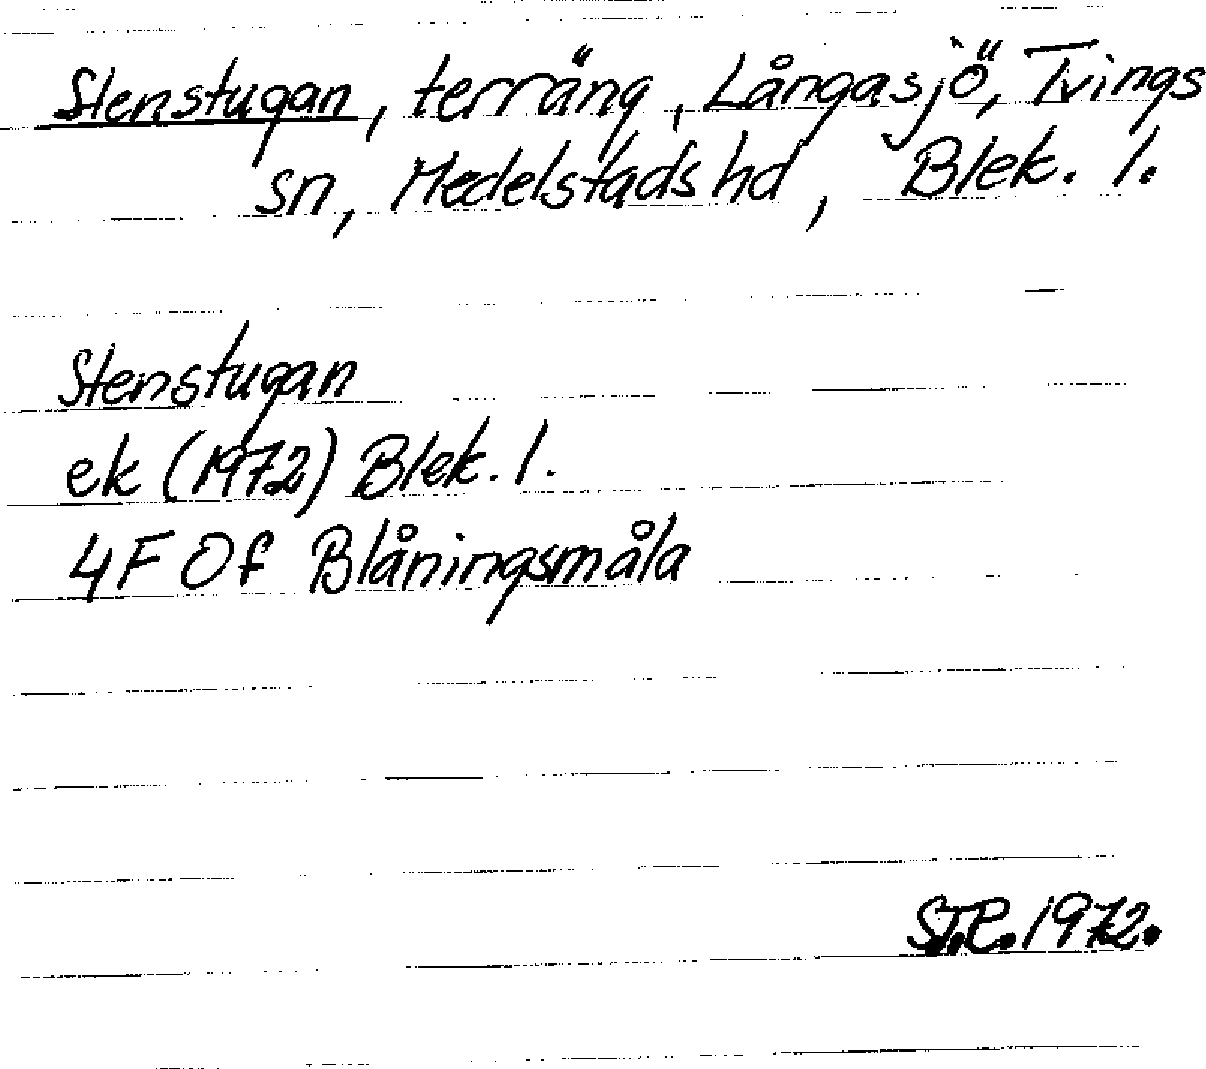 Stenstugan, terräng, Långasjö, Tvings
sn, Medelstads hd, Blek. l.
Stenstugan
ek (1972) Blek. l.
4F 0f Blåningsmåla
S.T.R. 1972.